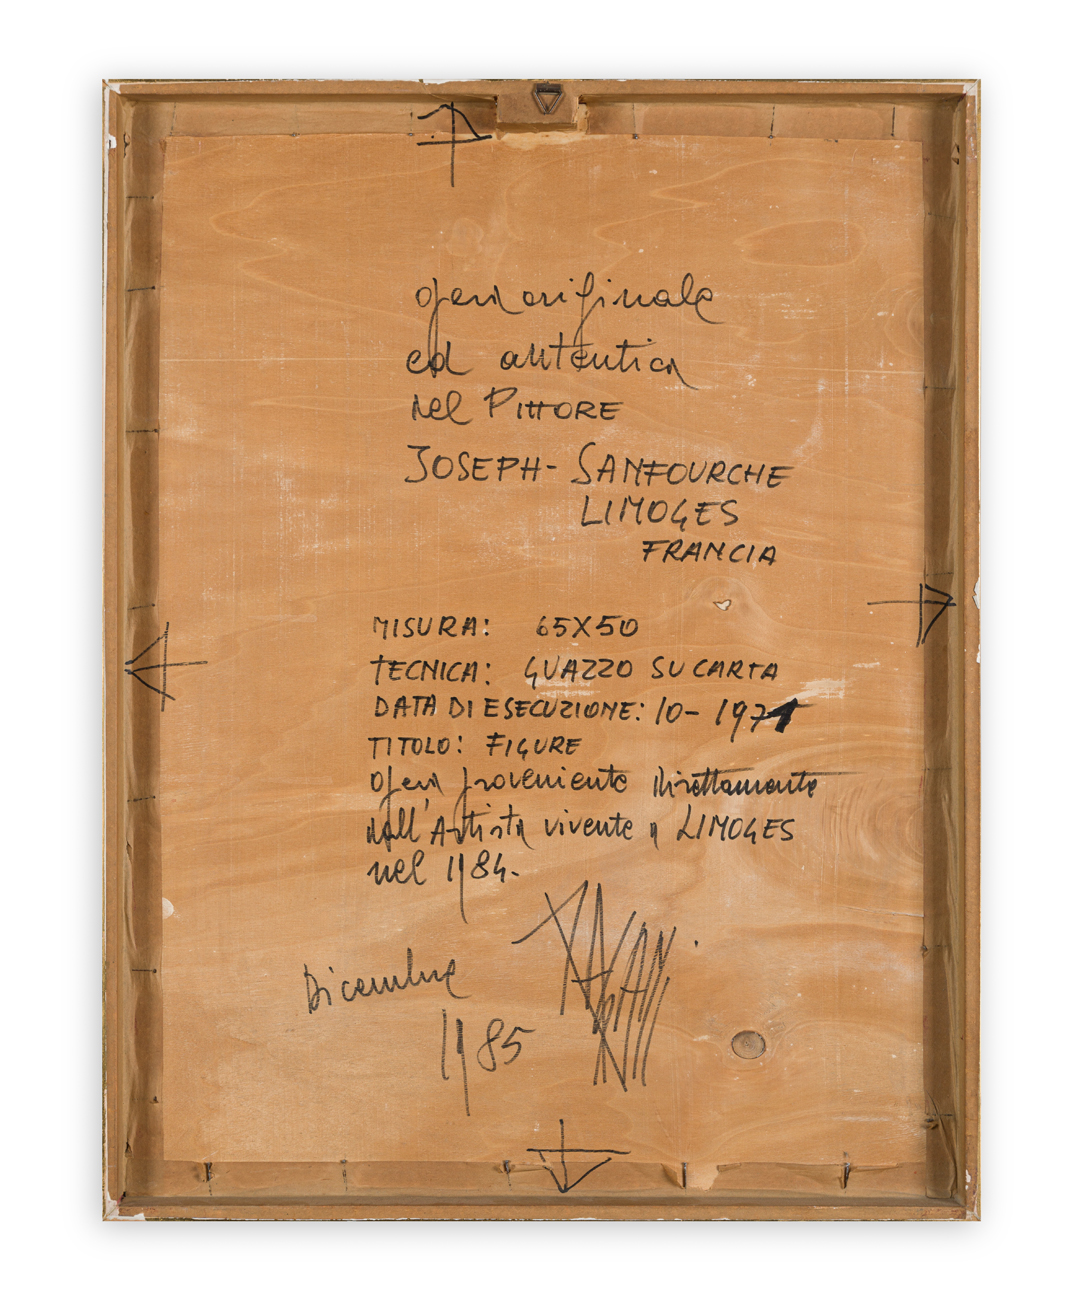 opera originale
ed autentica
del PITTORE
JOSEPH-SANFOURCHE
LIMOGES
FRANCIA
MISURA: 65X50
TECNICA: GUAZZO SU CARTA
DATA DI ESECUZIONE: 10-1971
TITOLO: FIGURE
opera proveniente direttamente
dall'Artista vivente a LIMOGES
nel 1984.
Dicembre
1985